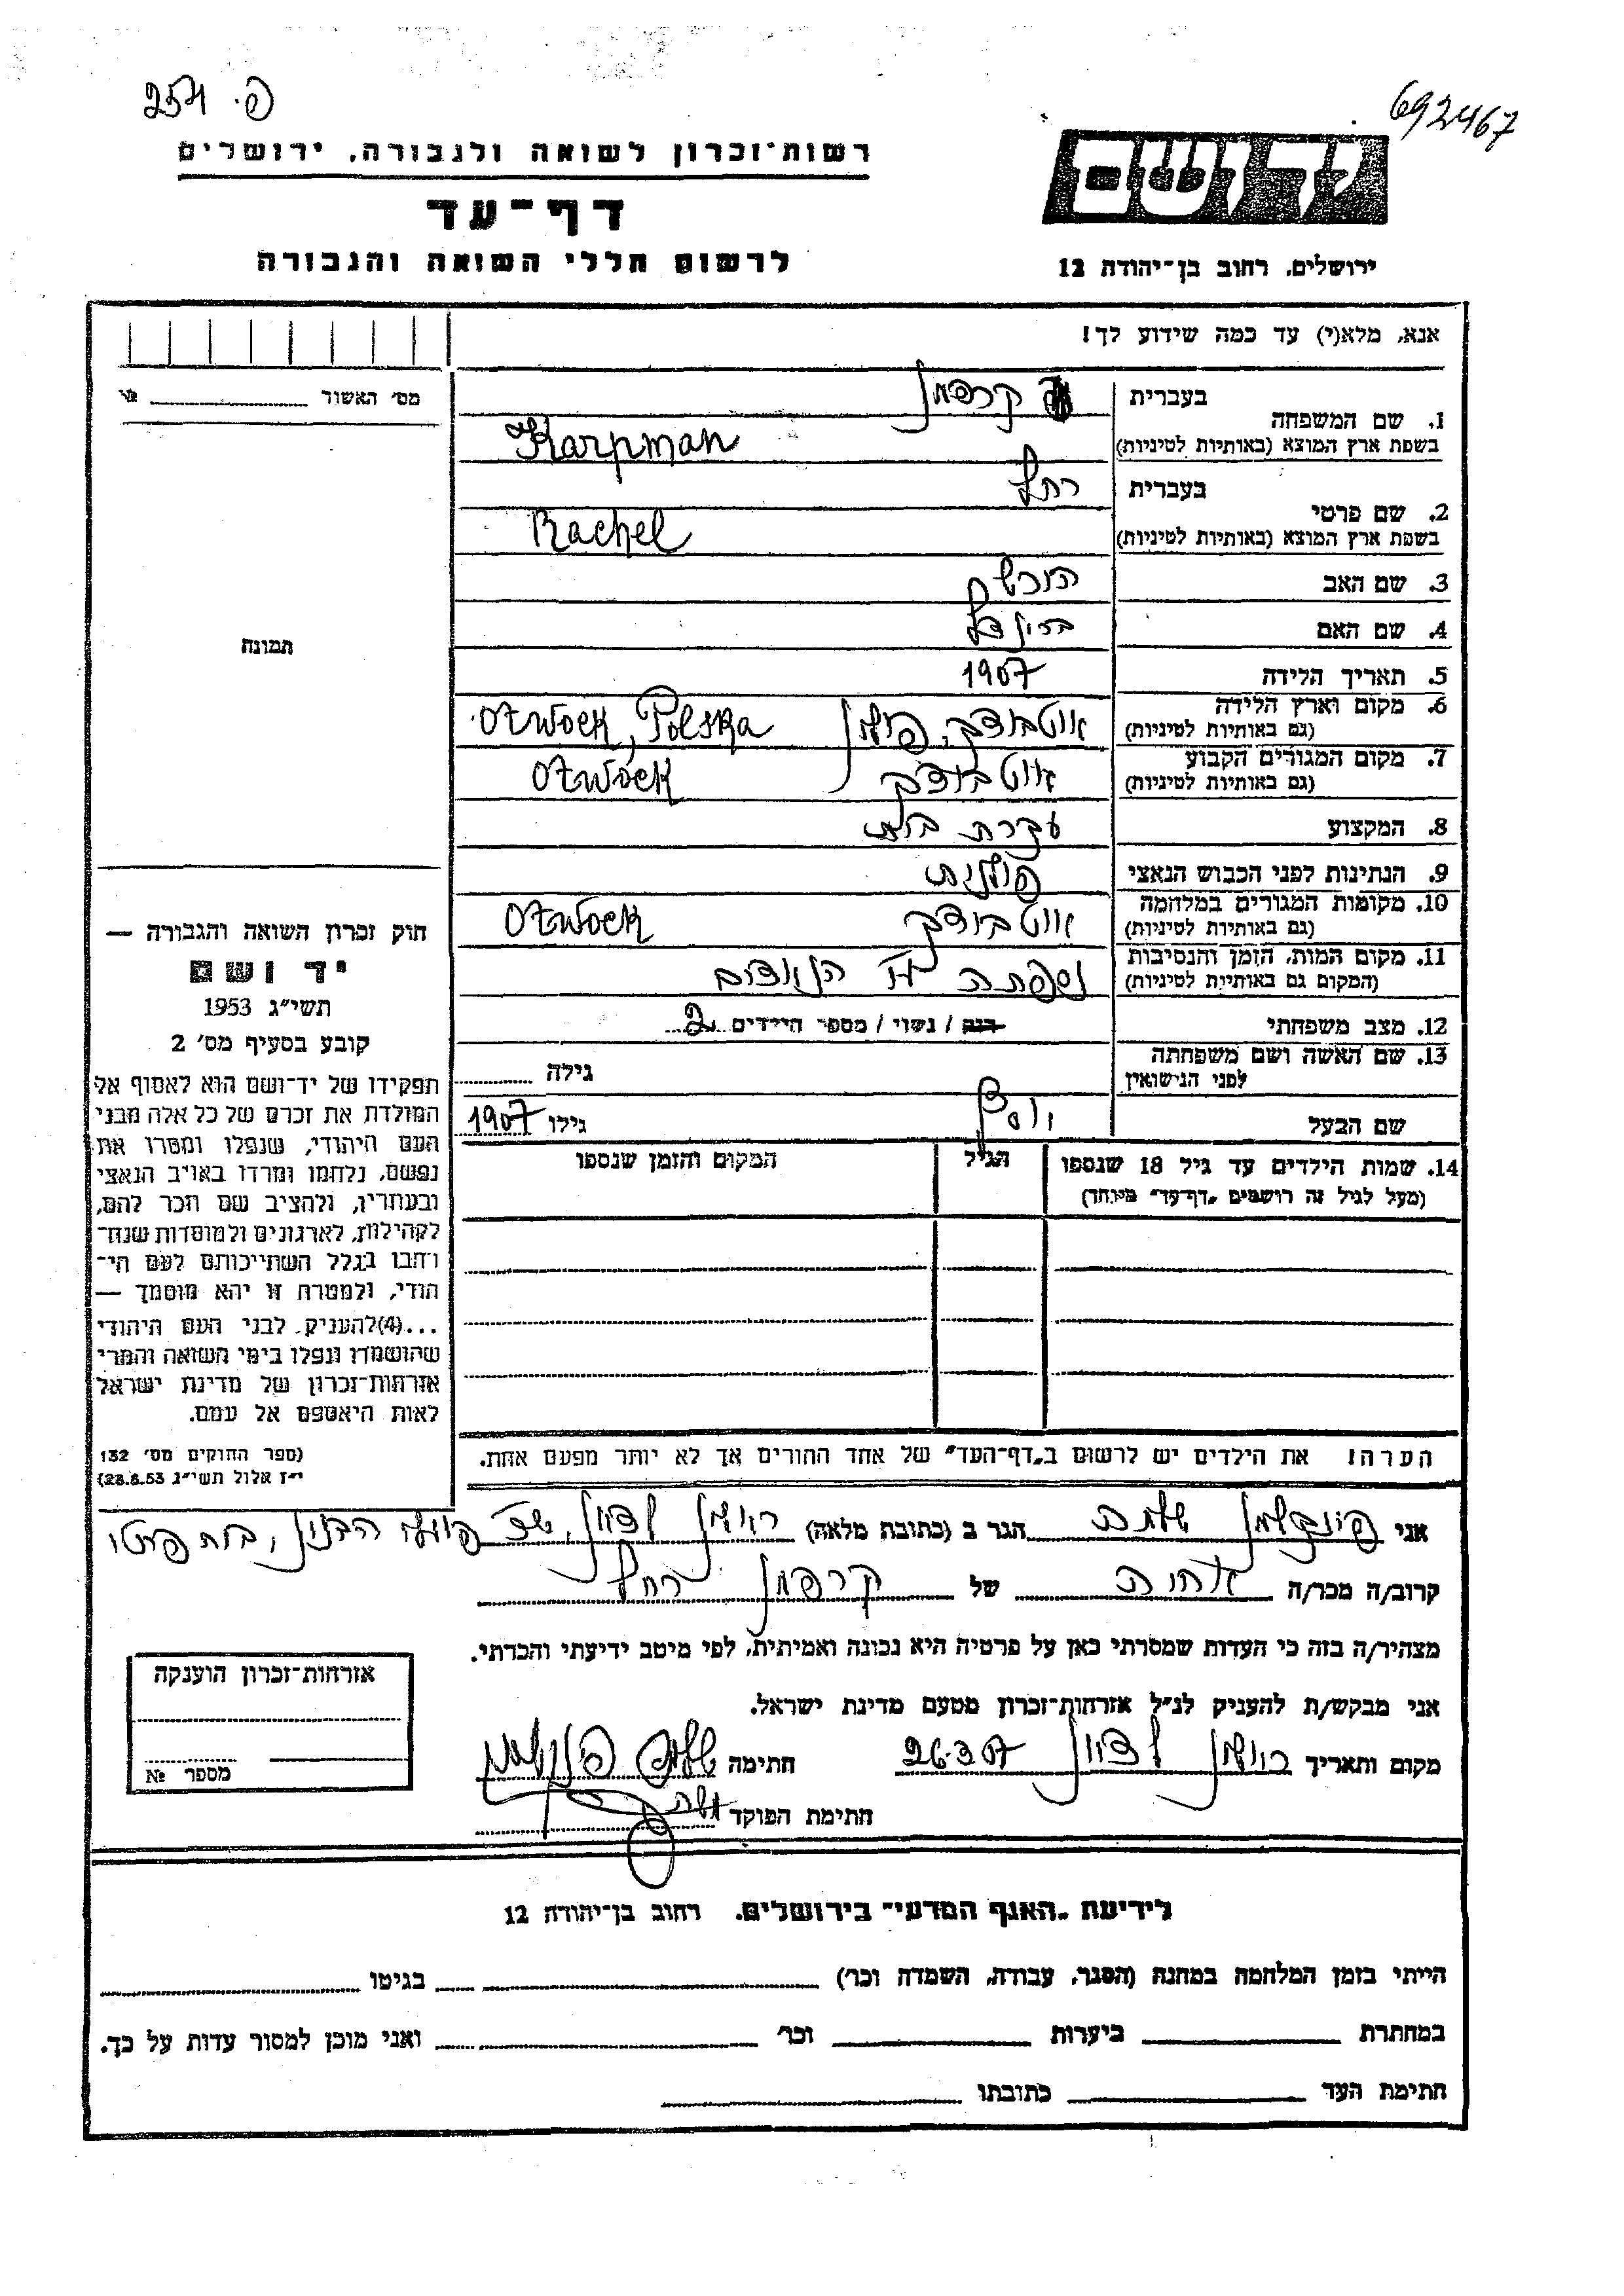 692467
פ. 254
יד ושם
ירושלים, רחוב בן־יהודה 12
רשות־זכרון לשואה ולגבורה, ירושלים
דף־עד
לרשום חללי השואה והגבורה
אנא, מלא(י) עד כמה שידוע לך!
מס׳ האשור №
1. שם המשפחה
בעברית קרפמן
בשפת ארץ המוצא (באותיות לטיניות) Karpman
2. שם פרטי
בעברית רחל
בשפת ארץ המוצא (באותיות לטיניות) Rachel
3. שם האב
4. שם האם
5. תאריך הלידה 1907
6. מקום וארץ הלידה אוטבוצק, פולין Otwock, Polska
(גם באותיות לטיניות)
7. מקום המגורים הקבוע אוטבוצק Otwock
(גם באותיות לטיניות)
8. המקצוע עקרת בית
9. הנתינות לפני הכבוש הנאצי פולנית
10. מקומות המגורים במלחמה אוטבוצק Otwock
(גם באותיות לטיניות)
11. מקום המות, הזמן והנסיבות נספתה ע״י הנאצים
(המקום גם באותיות לטיניות)
12. מצב משפחתי רווק / נשוי / מספר הילדים 2
13. שם האשה ושם משפחתה
לפני הנישואין גילה
שם הבעל יוסף גילו 1907
14. שמות הילדים עד גיל 18 שנספו הגיל המקום והזמן שנספו
(מעל לגיל זה רושמים „דף־עד״ מיוחד)
הערה! את הילדים יש לרשום ב„דף־העד״ של אחד ההורים אך לא יותר מפעם אחת.
תמונה
חוק זכרון השואה והגבורה —
יד ושם
תשי״ג 1953
קובע בסעיף מס׳ 2
תפקידו של יד־ושם הוא לאסוף אל
המולדת את זכרם של כל אלה מבני
העם היהודי, שנפלו ומסרו את
נפשם, נלחמו ומרדו באויב הנאצי
ובעוזריו, ולהציב שם וזכר להם,
לקהילות, לארגונים ולמוסדות שנח־
רבו בגלל השתייכותם לעם הי־
הודי, ולמטרה זו יהא מוסמך —
...(4)להעניק לבני העם היהודי
שהושמדו ונפלו בימי השואה והמרי
אזרחות־זכרון של מדינת ישראל
לאות היאספם אל עמם.
(ספר החוקים מס׳ 132
י״ז אלול תשי״ג 28.8.53)
אני פינקלמן הגר ב (כתובת מלאה) ראשון לציון,
קרוב/ה מכר/ה אחות של קרפמן רחל
מצהיר/ה בזה כי העדות שמסרתי כאן על פרטיה היא נכונה ואמיתית, לפי מיטב ידיעתי והכרתי.
אני מבקש/ת להעניק לנ״ל אזרחות־זכרון מטעם מדינת ישראל.
מקום ותאריך ראשון לציון חתימה
חתימת הפוקד
אזרחות־זכרון הוענקה
מספר №
לידיעת „האגף המדעי״ בירושלים. רחוב בן־יהודה 12
הייתי בזמן המלחמה במחנה (הסגר, עבודה, השמדה וכו׳) בגיטו
במחתרת ביערות וכו׳ ואני מוכן למסור עדות על כך.
חתימת העד כתובתו